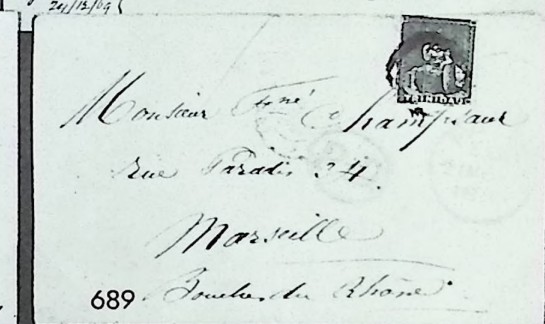 24/12/69
TRINIDAD
Monsieur Aîné Champsaur
rue Paradis 34.
Marseille
689 Bouches du Rhône